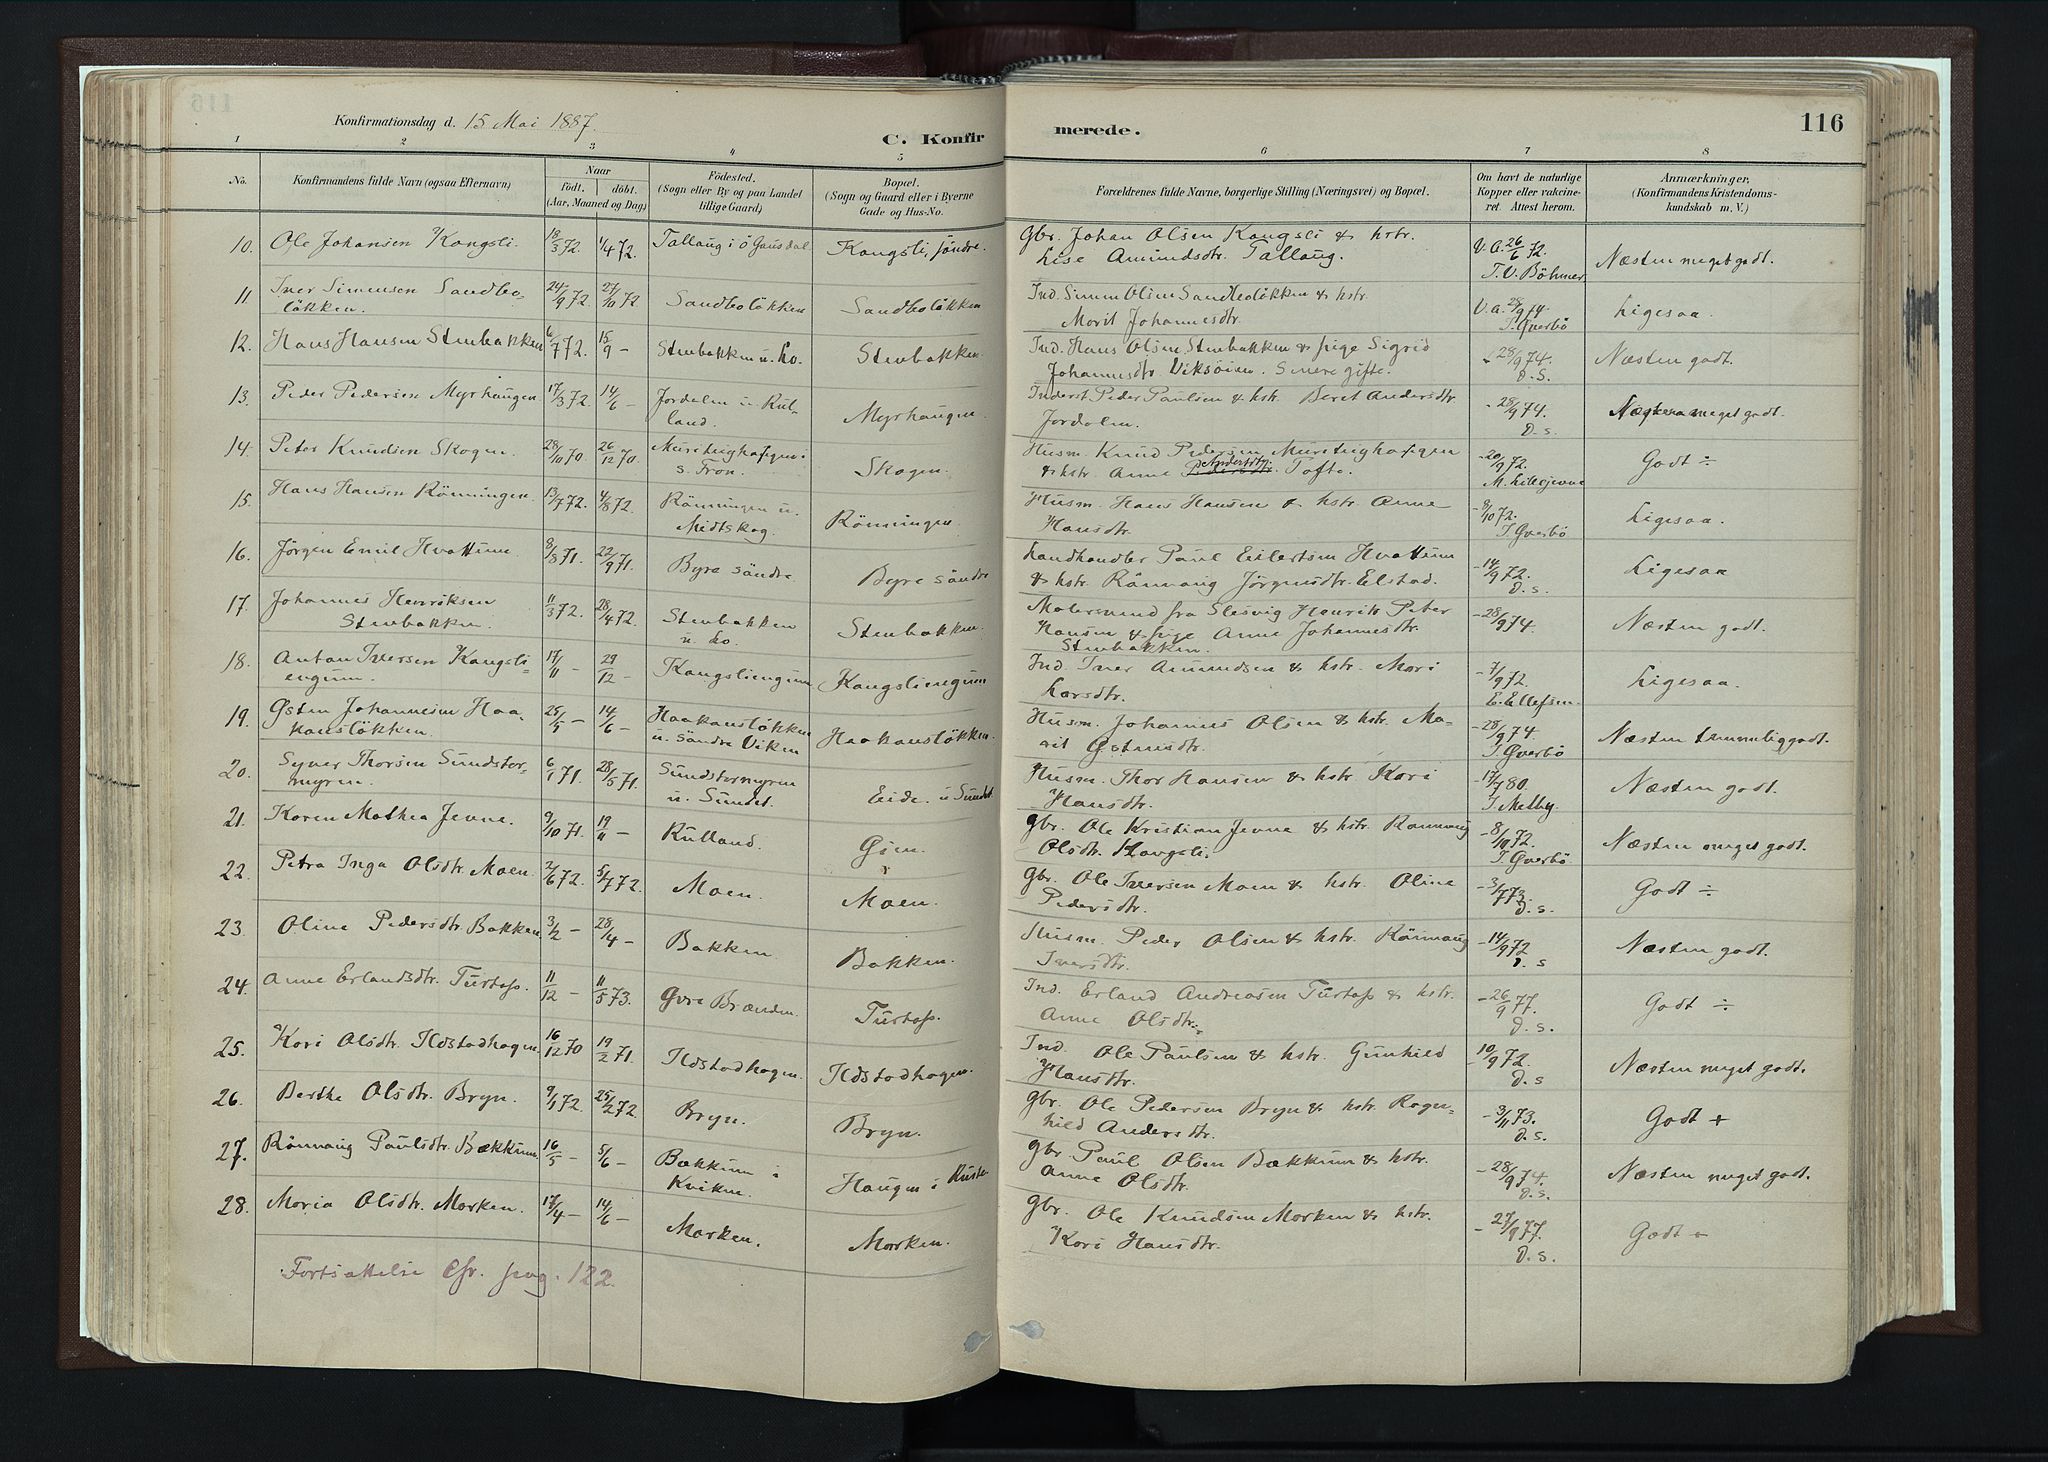 Konfirmationsdag d. 15 Mai 1887.
C. Konfirmerede.
116
1 2 3 4 5 6 7 8
No.
Konfirmandens fulde Navn (ogsaa Efternavn)
Naar
født. døbt.
(Aar, Maaned og Dag)
Fødested.
(Sogn eller By og paa Landet
tillige Gaard)
Bopæl.
(Sogn og Gaard eller i Byerne
Gade og Hus-No.
Forældrenes fulde Navne, borgerlige Stilling (Næringsvei) og Bopæl.
Om havt de naturlige
Kopper eller vakcine-
ret. Attest herom.
Anmærkninger,
(Konfirmandens Kristendoms-
kundskab m. V.)
10. Ole Johansen Kongsli. 18/3 72. 1/4 72. Tallaug i Ö Gausdal Kongsli, søndre. Gbr. Johan Olsen Kongsli & hstr.
Lise Amundsdtr. Tallaug. V.A. 26/6 72. T. V. Böhmer Næsten meget godt.
11 Iver Simensen Sandbo-
løkken. 24/9 72. 27/10 72 Sandboløkken Sandboløkken Ind. Simen Olsen Sandboløkken & hstr.
Marit Johannesdtr. V.A. 28/9 74. I. Qverbö Ligesaa.
12. Hans Hansen Stenbakken 6/7 72. 15/9 – Stenbakken u. Lo. Stenbakken. Ind. Hans Olsen Stenbakken & pige Sigrid
Johannesdtr. Viksöien. Senere gifte. – 28/9 74. D. S. Næsten godt.
13. Peder Pedersen Myrhaugen 17/3 72. 14/6 – Jordalen u. Rul-
land. Myrhaugen. Inderst Peder Paulsen & hstr. Beret Andersdtr.
Jordalen. – 28/9 74. D. s. Næsten meget godt.
14. Peter Knudsen Skogen. 28/10 70. 26/12 70.
s. Fron. Skogen. Husm. Knud Pedersen
& hstr. Anne Andersdtr. Tofte. – 20/9 72. M. Lillejevne Godt ÷
15. Hans Hansen Rönningen. 13/7 72. 4/8 72. Rönningen u.
Midtskog. Rönningen. Husm. Hans Hansen & hstr. Anne
Hansdtr. – 8/10 72. I. Qverbö Ligesaa.
16. Jörgen Emil Hvattum. 8/8 71. 22/9 71. Byre söndre. Byre söndre Landhandler Paul Eilertsen Hvattum
& hstr. Rönnaug Jörgensdtr. Elstad. – 14/9 72. D. s. Ligesaa
17. Johannes Henriksen
Stenbakken. 11/3 72. 28/4 72. Stenbakken
u. Lo. Stenbakken. Malersvend fra Slesvig Henrik Peter
Hansen & pige Anne Johannesdtr.
Stenbakken. – 28/9 74. Næsten godt.
18. Anton Iversen Kongsli-
engum. 17/11 – 29/12 – Kongsliengum Kongsliengum Ind. Iver Amundsen & hstr. Mari
Larsdtr. – 7/9 72. E. Ellefsen. Ligesaa.
19. Østen Johannesen Haa-
kansløkken. 25/5 – 14/6 – Haakansløkken
u. söndre Viken Haakansløkken. Husm. Johannes Olsen & hstr. Ma-
rit Østensdtr. – 28/9 74. I. Qverbö Næsten temmelig godt.
20. Syver Thorsen Sundstor-
myren. 6/1 71. 28/5 71. Sundstormyren
u. Sundet. Eide. u Sundet. Husm. Thor Hansen & hstr. Kari
Hansdtr. – 17/7 80. I. Melby. Næsten godt.
21. Karen Mathea Jevne. 9/10 71. 19/11 – Rulland. Gsen. Gbr. Ole Kristian Jevne & hstr. Rönnaug
Olsdtr. Kongsli. – 8/10 72. I. Qverbö Næsten meget godt.
22. Petra Inga Olsdtr. Moen. 2/6 72. 5/7 72. Moen. Moen. Gbr. Ole Iversen Moen & hstr. Oline
Pedersdtr. – 3/7 73. D. s. Godt ÷
23. Oline Pedersdtr. Bakken. 3/2 – 28/4 – Bakken Bakken. Husm. Peder Olsen & hstr. Rönnaug
Iversdtr. – 14/9 72 D. s Næsten godt.
24. Anne Erlandsdtr. Turtass. 11/12 – 11/5 73. Øvre Brænden. Turtass. Ind. Erland Andreasen Turtass & hstr.
Anne Olsdtr. – 26/9 77. D. s. Godt ÷
25. Kari Olsdtr. Ildstadhagen. 16/12 70 19/2 71. Ildstadhagen. Ildstadhagen. Ind. Ole Paulsen & hstr. Gunhild
Hansdtr. – 10/9 72. D. s Næsten meget godt.
26. Berthe Olsdtr. Bryn. 9/1 72. 25/2 72. Bryn. Bryn. Gbr. Ole Pedersen Bryn & hstr. Ragn-
hild Andersdtr. – 3/11 73. D. s. Godt +
27. Rönnaug Paulsdtr. Bækkum. 16/5 – 5/6 – Bækkum i
Kviken. Haugen i Gbr. Paul Olsen Bækkum & hstr.
Anne Olsdtr. – 28/9 74. D. s. Næsten meget godt.
28. Maria Olsdtr. Morken. 17/4 – 14/6 – Morken. Morken. Gbr. Ole Knudsen Morken & hstr.
Kari Hansdtr. – 27/9 77. D. s. Godt +
Fortsættelse Cfr. pag. 122.